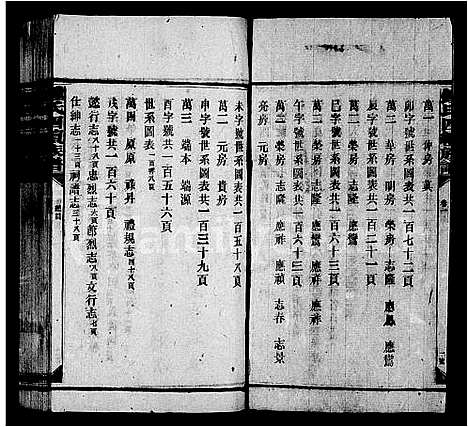 萬一 仲房 真
卯字號世系圖表共一百七十二頁
萬二 華房 明房 榮房 志隆 應鳳 應鸞
辰字號世系圖表共一百二十一頁
萬二 榮房 志隆 應鸞 應祥
巳字號世系圖表共一百六十三頁
萬二 榮房 志隆 應祥 應禎 志春 志景
午字號世系圖表共一百六十三頁
萬二 亮房
未字號世系圖表共一百五十八頁
萬二 元房 貴房
申字號世系圖表共一百三十九頁
萬三 端本 端源
酉字號共一百五十六頁
世系圖表
萬四 原 祿丹 禮規志四十八頁
戌字號共一百六十頁
懿行志八十六頁 忠烈志六頁 節烈志 文行志七頁
仕紳志二十三頁 祠譜志三十八頁